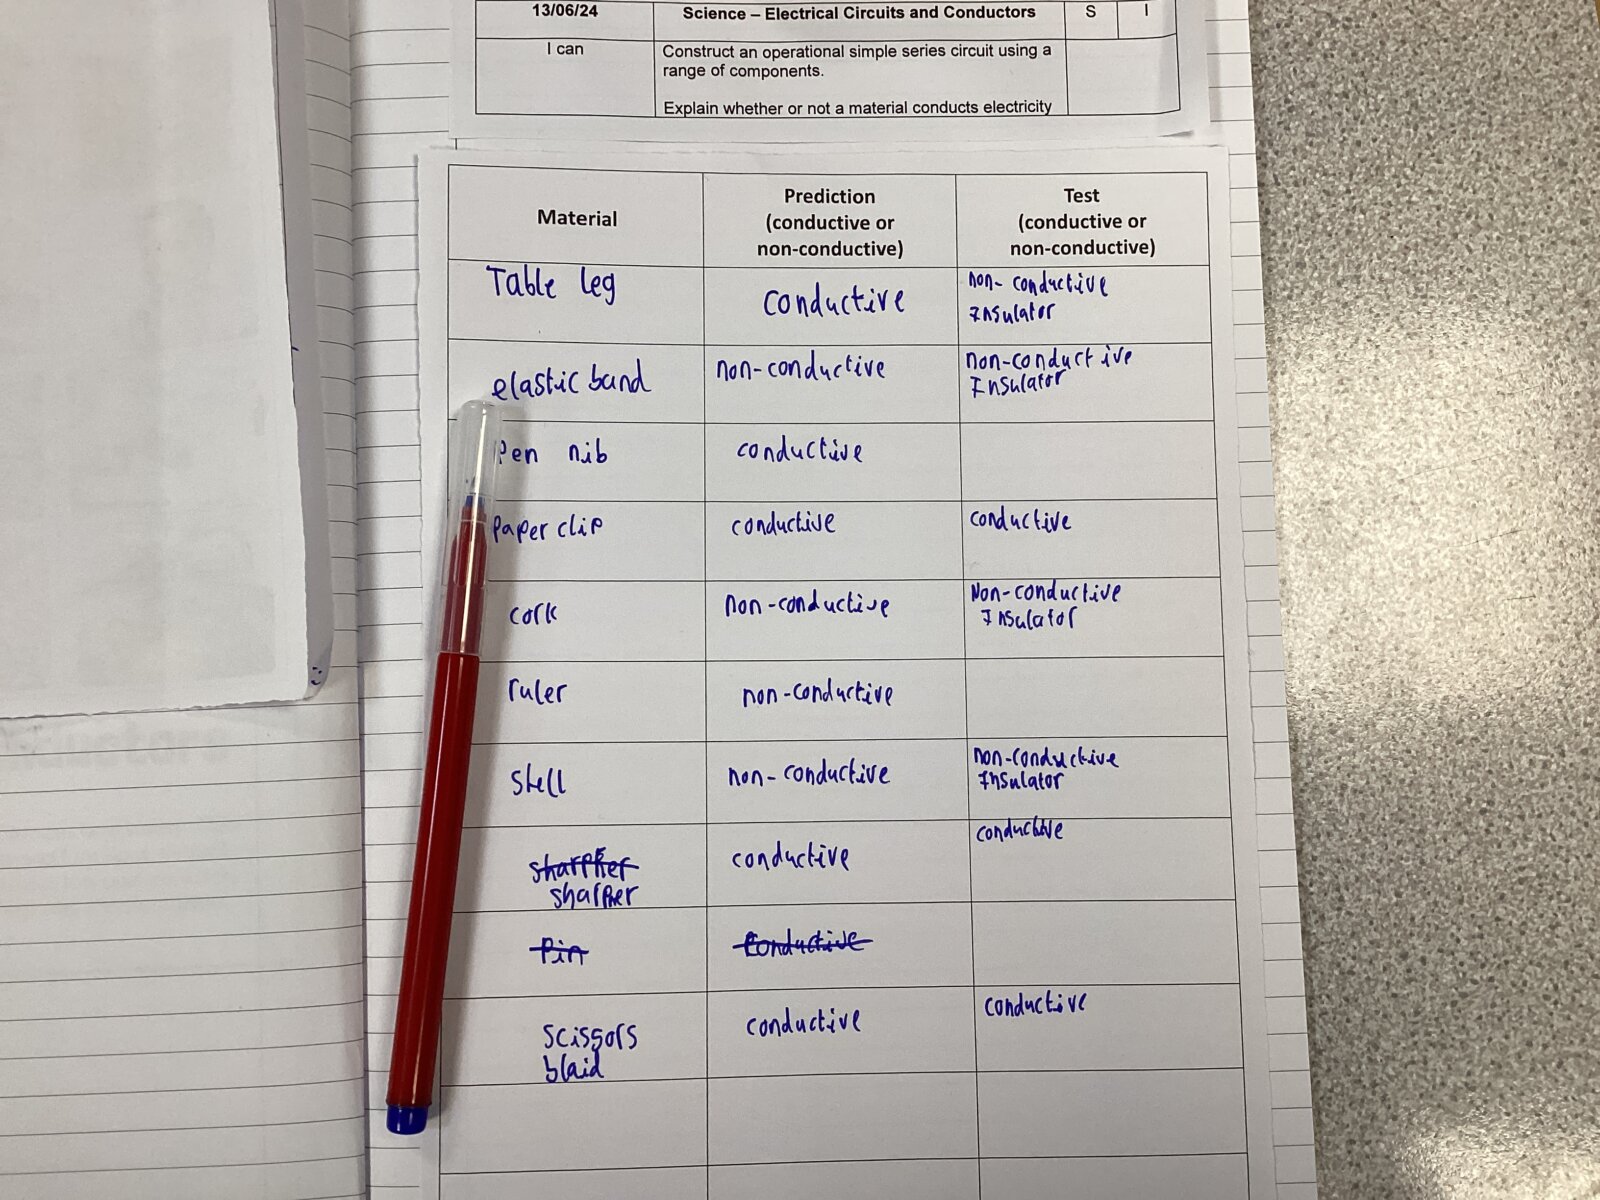 13/06/24 Science – Electrical Circuits and Conductors S I
I can Construct an operational simple series circuit using a
range of components.
Explain whether or not a material conducts electricity
Material
Prediction
(conductive or
non-conductive)
Test
(conductive or
non-conductive)
Table leg conductive non-conductive
Insulator
elastic band non-conductive non-conductive
Insulator
Pen nib conductive
Paper clip conductive conductive
cork non-conductive Non-conductive
Insulator
ruler non-conductive
Shell non-conductive non-conductive
Insulator
conductive conductive
sharpner
Pin Conductive
Scissors conductive conductive
blaid